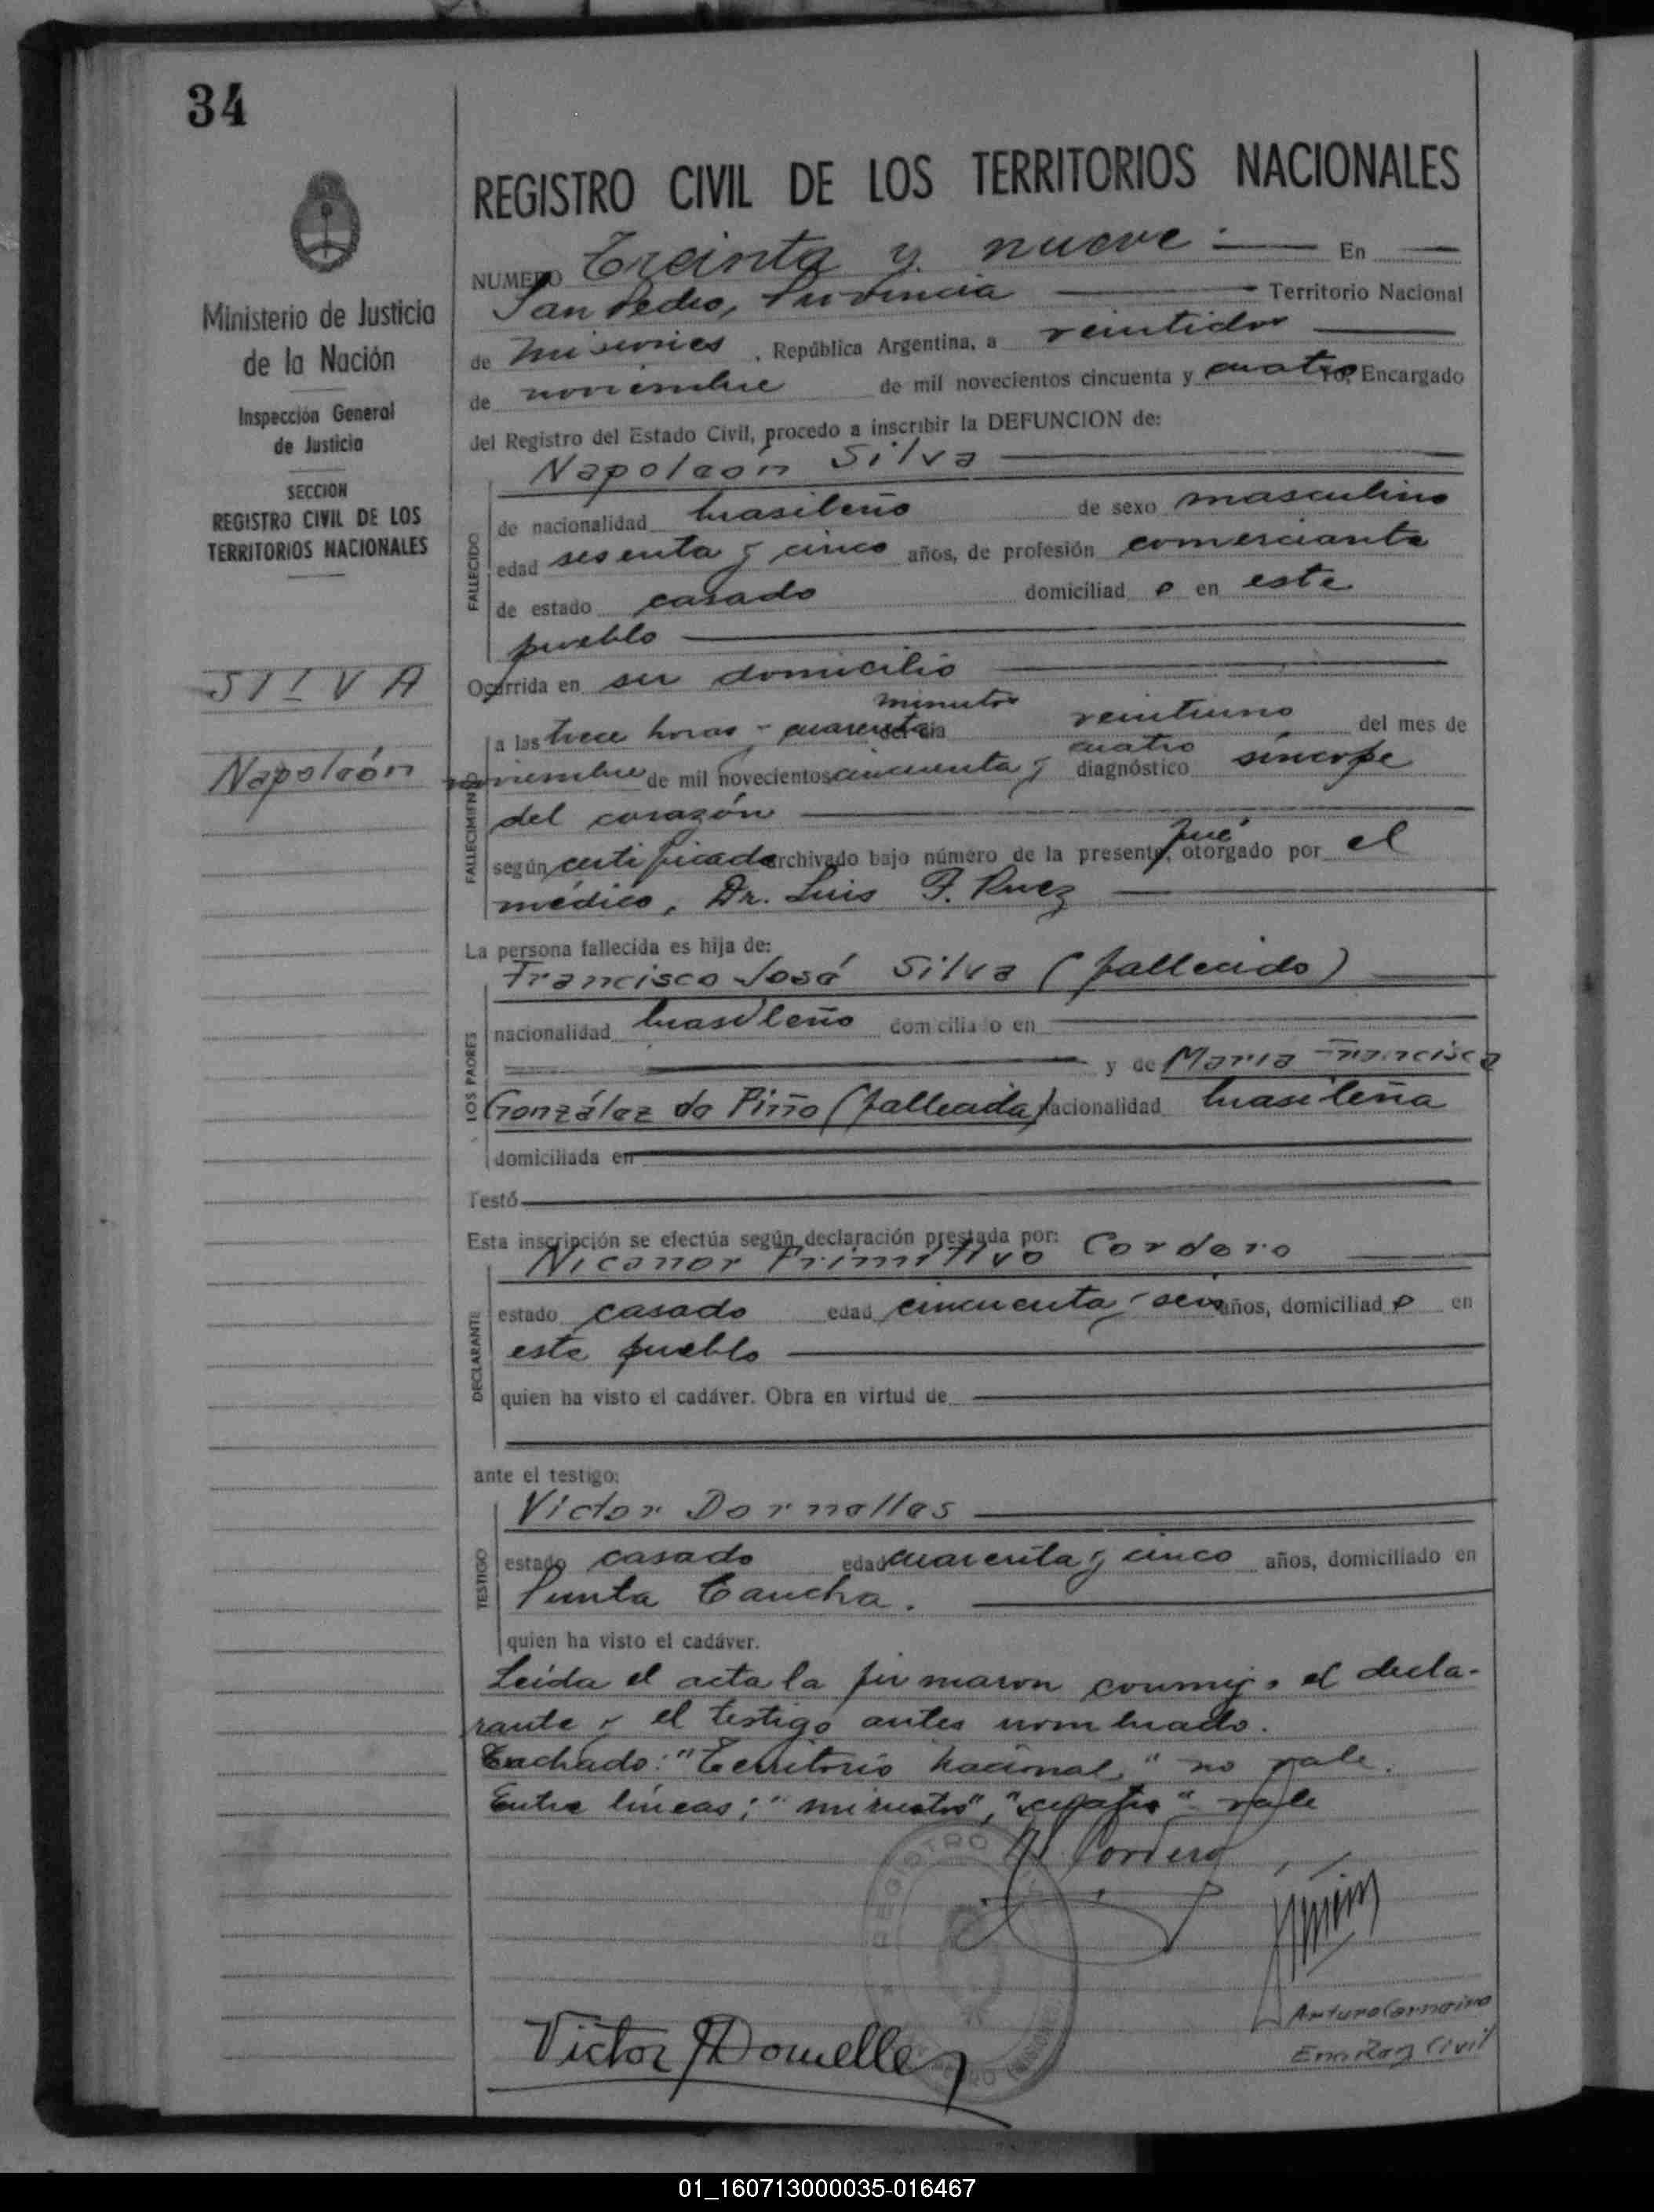 34
Ministerio de Justicia
de la Nación
Inspección General
de Justicia
SECCION
REGISTRO CIVIL DE LOS
TERRITORIOS NACIONALES
SILVA
Napoleón
REGISTRO CIVIL DE LOS TERRITORIOS NACIONALES
NUMERO Treinta y nueve.- En
San Pedro, Provincia Territorio Nacional
de Misiones, República Argentina, a veintidos
de noviembre de mil novecientos cincuenta y cuatro Yo, Encargado
del Registro del Estado Civil, procedo a inscribir la DEFUNCION de:
Napoleón Silva
FALLECIDO
de nacionalidad brasileño de sexo masculino
edad sesenta y cinco años, de profesión comerciante
de estado casado domiciliado en este
pueblo
Ocurrida en su domicilio
minutos
a las trece horas y cuarenta del día veintiuno del mes de
cuatro
noviembre de mil novecientos cincuenta y diagnóstico síncope
FALLECIMIENTO
del corazón
que
según certificado archivado bajo número de la presente, otorgado por el
médico, Dr. Luis F.
La persona fallecida es hija de:
Francisco José Silva (fallecido)
LOS PADRES
nacionalidad brasileño domiciliado en
y de María Francisca
González de Piño (fallecida) nacionalidad brasileña
domiciliada en
Testó
Esta inscripción se efectúa según declaración prestada por:
Nicanor Primitivo Cordero
DECLARANTE
estado casado edad cincuenta y seis años, domiciliado en
este pueblo
quien ha visto el cadáver. Obra en virtud de
ante el testigo:
Victor Dornelles
TESTIGO
estado casado edad cuarenta y cinco años, domiciliado en
Punta Caucha.
quien ha visto el cadáver.
Leída el acta la firmaron conmigo el decla-
rante y el testigo antes nombrado.
Tachado: "Territorio Nacional" no vale.
Entre líneas: "minutos", "cuatro" vale
N Cordero
REGISTRO
Victor Dornelles
Arturo
Enc Reg Civil
01_160713000035-016467